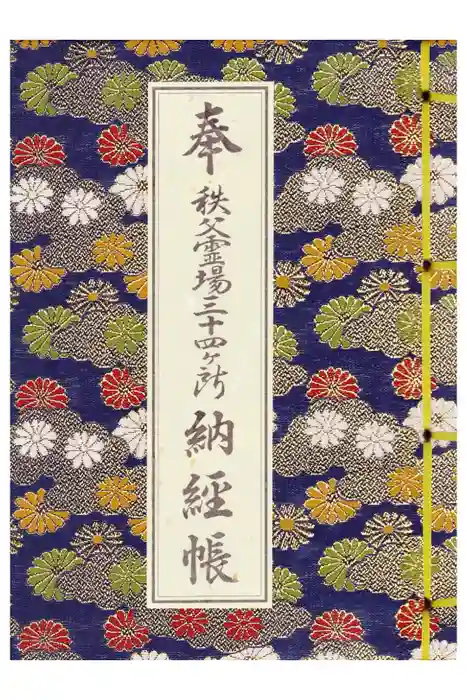 奉秩父霊場三十四ヶ所納経帳